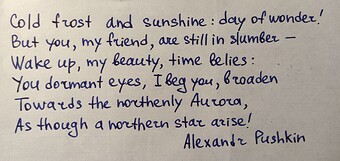 Cold frost and sunshine: day of wonder!
But you, my friend, are still in slumber –
Wake up, my beauty, time belies:
You dormant eyes, I beg you, broaden
Towards the northenly Aurora,
As though a northern star arise!
Alexandr Pushkin